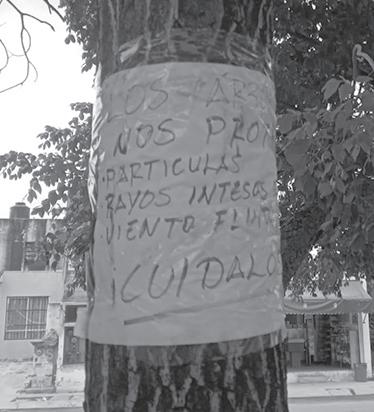 LOS ARB
NOS PRO
PARTICULAS
RAYOS INTESOS
VIENTO FU
¡CUIDALO